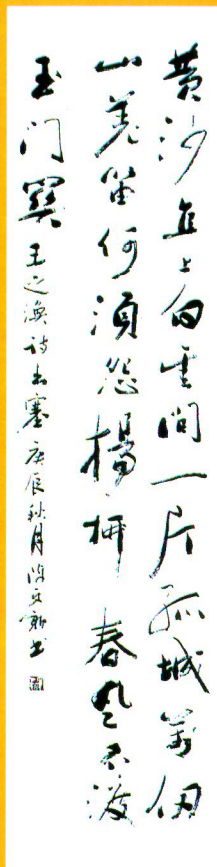 黄沙直上白云间一片孤城万仞
山羌笛何须怨杨柳 春风不渡
玉门关 王之涣诗出塞 庚辰秋月 陈文新书